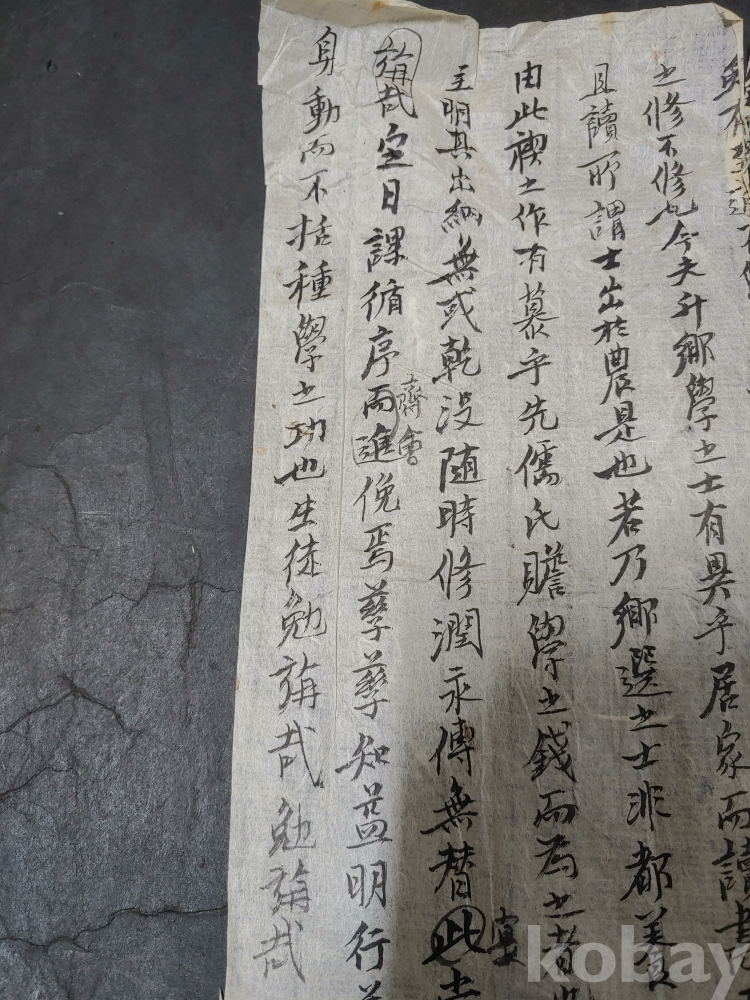 之修不修也今夫升鄉學之士有異乎居家而讀書
且讀所謂士出於農是也若乃鄉選之士非都養
由此禊之作有慕乎先儒氏贍學之錢而為之者
主明其出納無或乾没随時修潤永傳無替此
寔
講哉定日課循序而進俛焉孳孳知益明行益
齋會
身動而不括種學之功也生徒勉講哉勉講哉
kobay